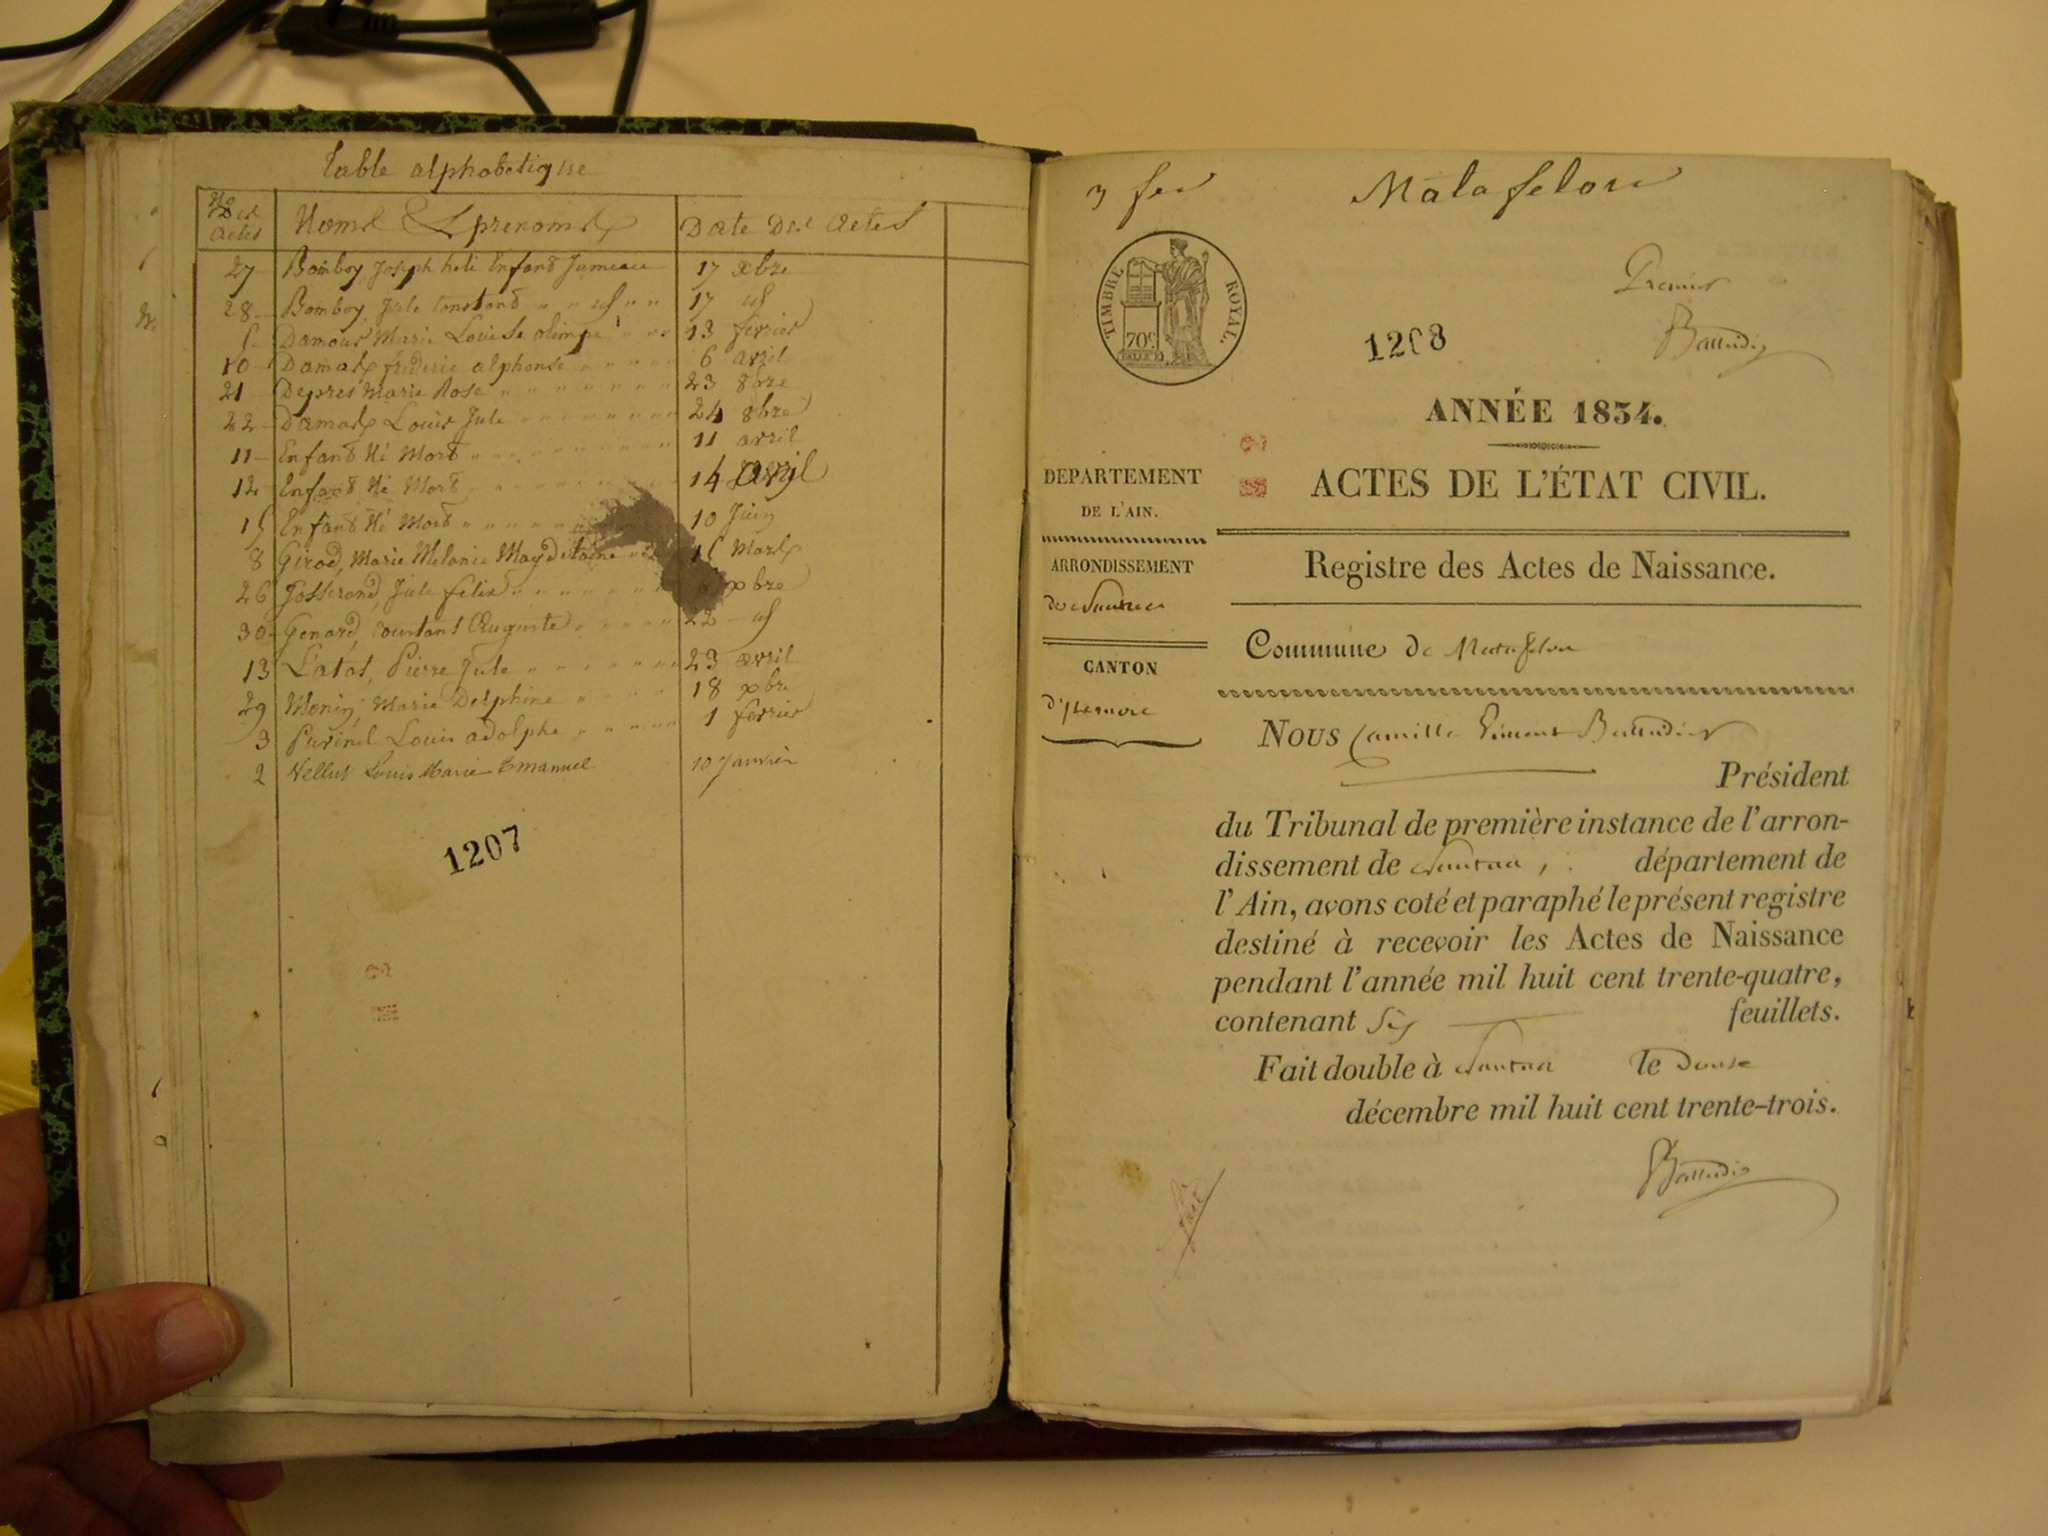 Table alphabetique
Nos Des Actes
Noms & prenoms
Date Des Actes
27 Bomboy Joseph heli Enfant Jumeau 17 xbre
28 Bomboy, Jule Constand " " id " " 17 id
Damour Marie Louise olimpe " " 13 fevrier
10 Damas frederic alphonse " " " " 6 avril
21 Depres Marie Rose " " " " " " 23 8bre
22 Damas Louis Jule " " " " " " 24 8bre
11 Enfant Né Mort " " " " " " 11 avril
12 Enfant Né Mort " " " " " " 14 avril
15 Enfant Né Mort " " " " " 10 Juin
8 Girod, Marie Melanie Magdelaine Mars
26 Josserand, Jule felix " " " " " xbre
30 Genard, Constant Auguste " " " " 22 id
13 Latat, Pierre Jule " " " " " 23 avril
29 Monin Marie Delphine " " " " 18 xbre
3 Louis adolphe " " " " 1 fevrier
2 Vellut Louis Marie Emanuel 10 Janvier
1207
3 fev
Malafelon
TIMBRE ROYAL
70c
Premier
1208
ANNÉE 1834.
DEPARTEMENT
DE L'AIN.
ACTES DE L'ÉTAT CIVIL.
ARRONDISSEMENT
de Nantua
Registre des Actes de Naissance.
CANTON
d'Izernore
Commune de Matafelon
Nous Camille
Président
du Tribunal de première instance de l'arron-
dissement de Nantua, département de
l'Ain, avons coté et paraphé le présent registre
destiné à recevoir les Actes de Naissance
pendant l'année mil huit cent trente-quatre,
contenant Six feuillets.
Fait double à Nantua le Douze
décembre mil huit cent trente-trois.